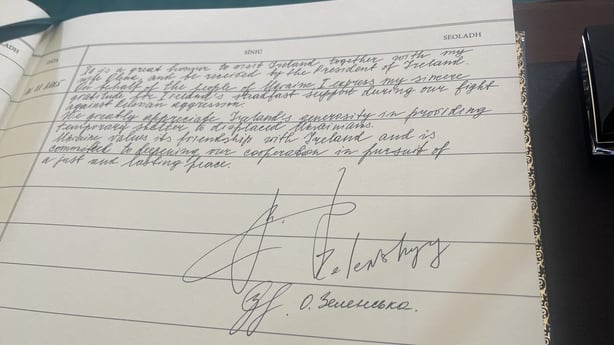 SÍNIÚ
SEOLADH
It is a great honour to visit Ireland, together with my
wife Olena, and be received by the President of Ireland.
On behalf of the people of Ukraine I express my sincere
gratitude for Ireland's steadfast support during our fight
against Russian aggression.
We greatly appreciate Ireland's generosity in providing
temporary shelter to displaced Ukrainians.
Ukraine values its friendship with Ireland and is
committed to deepening our cooperation in pursuit of
a just and lasting peace.
Zelenskyy
О. Зеленська.